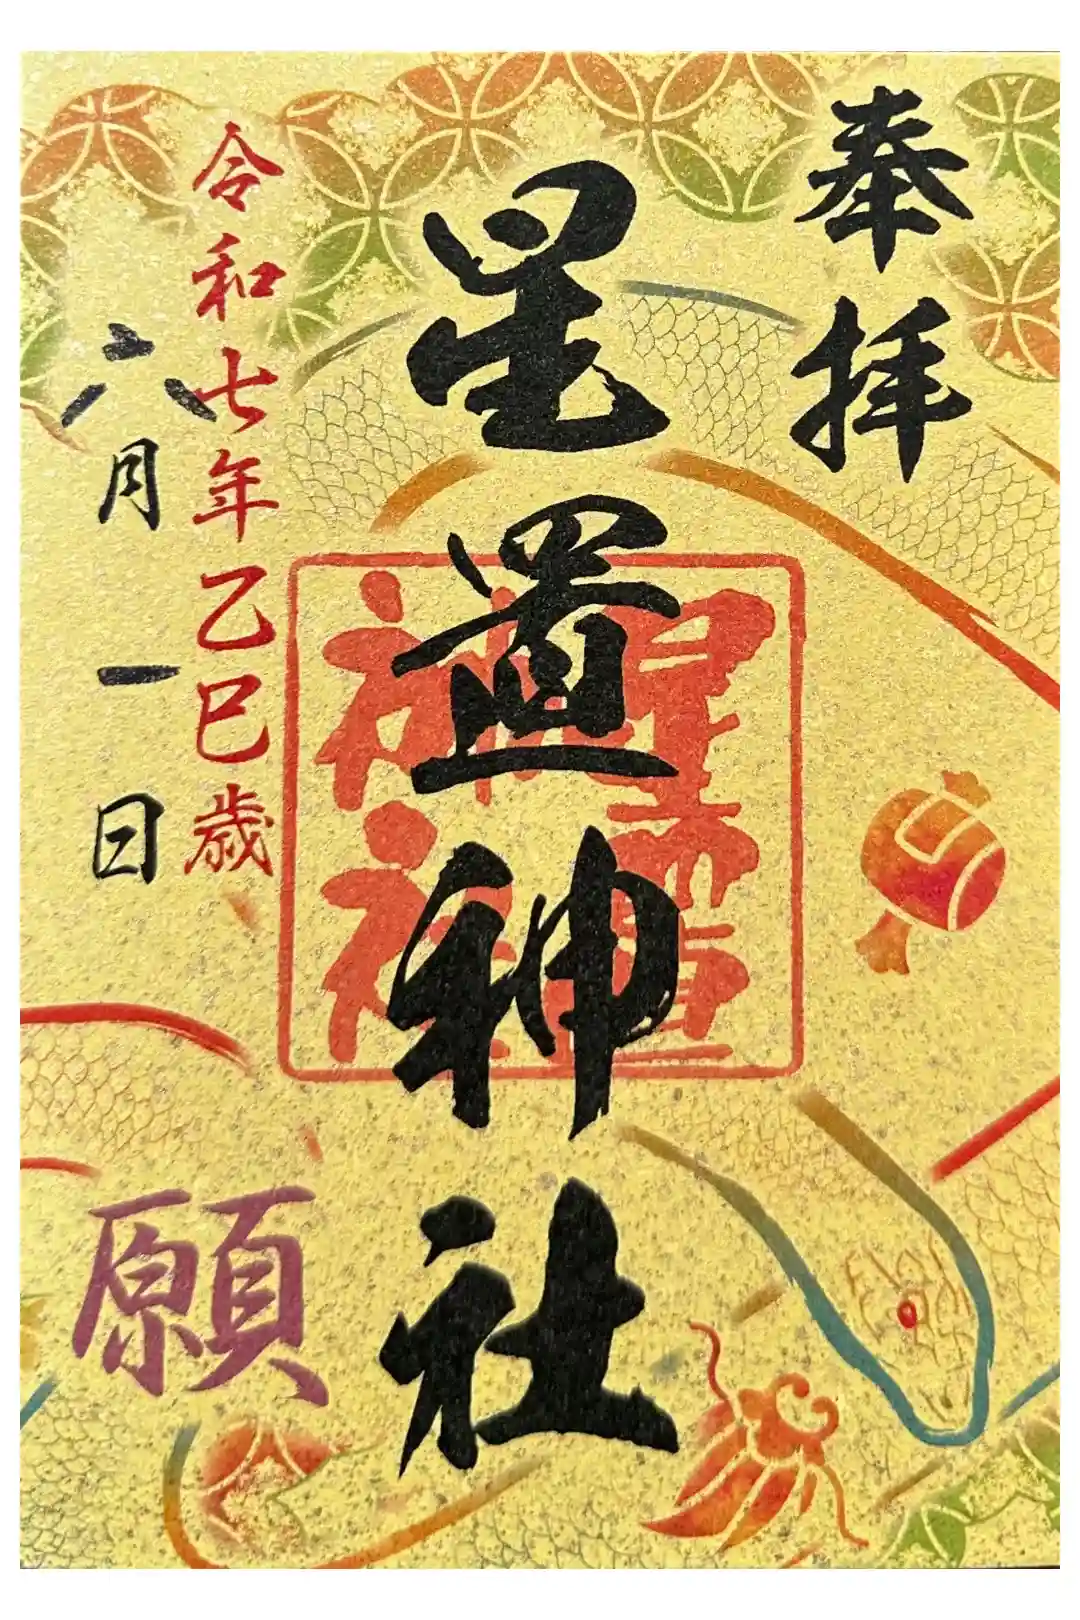 奉拝
星置神社
星置
神社
令和七年乙巳歳
六月一日
願